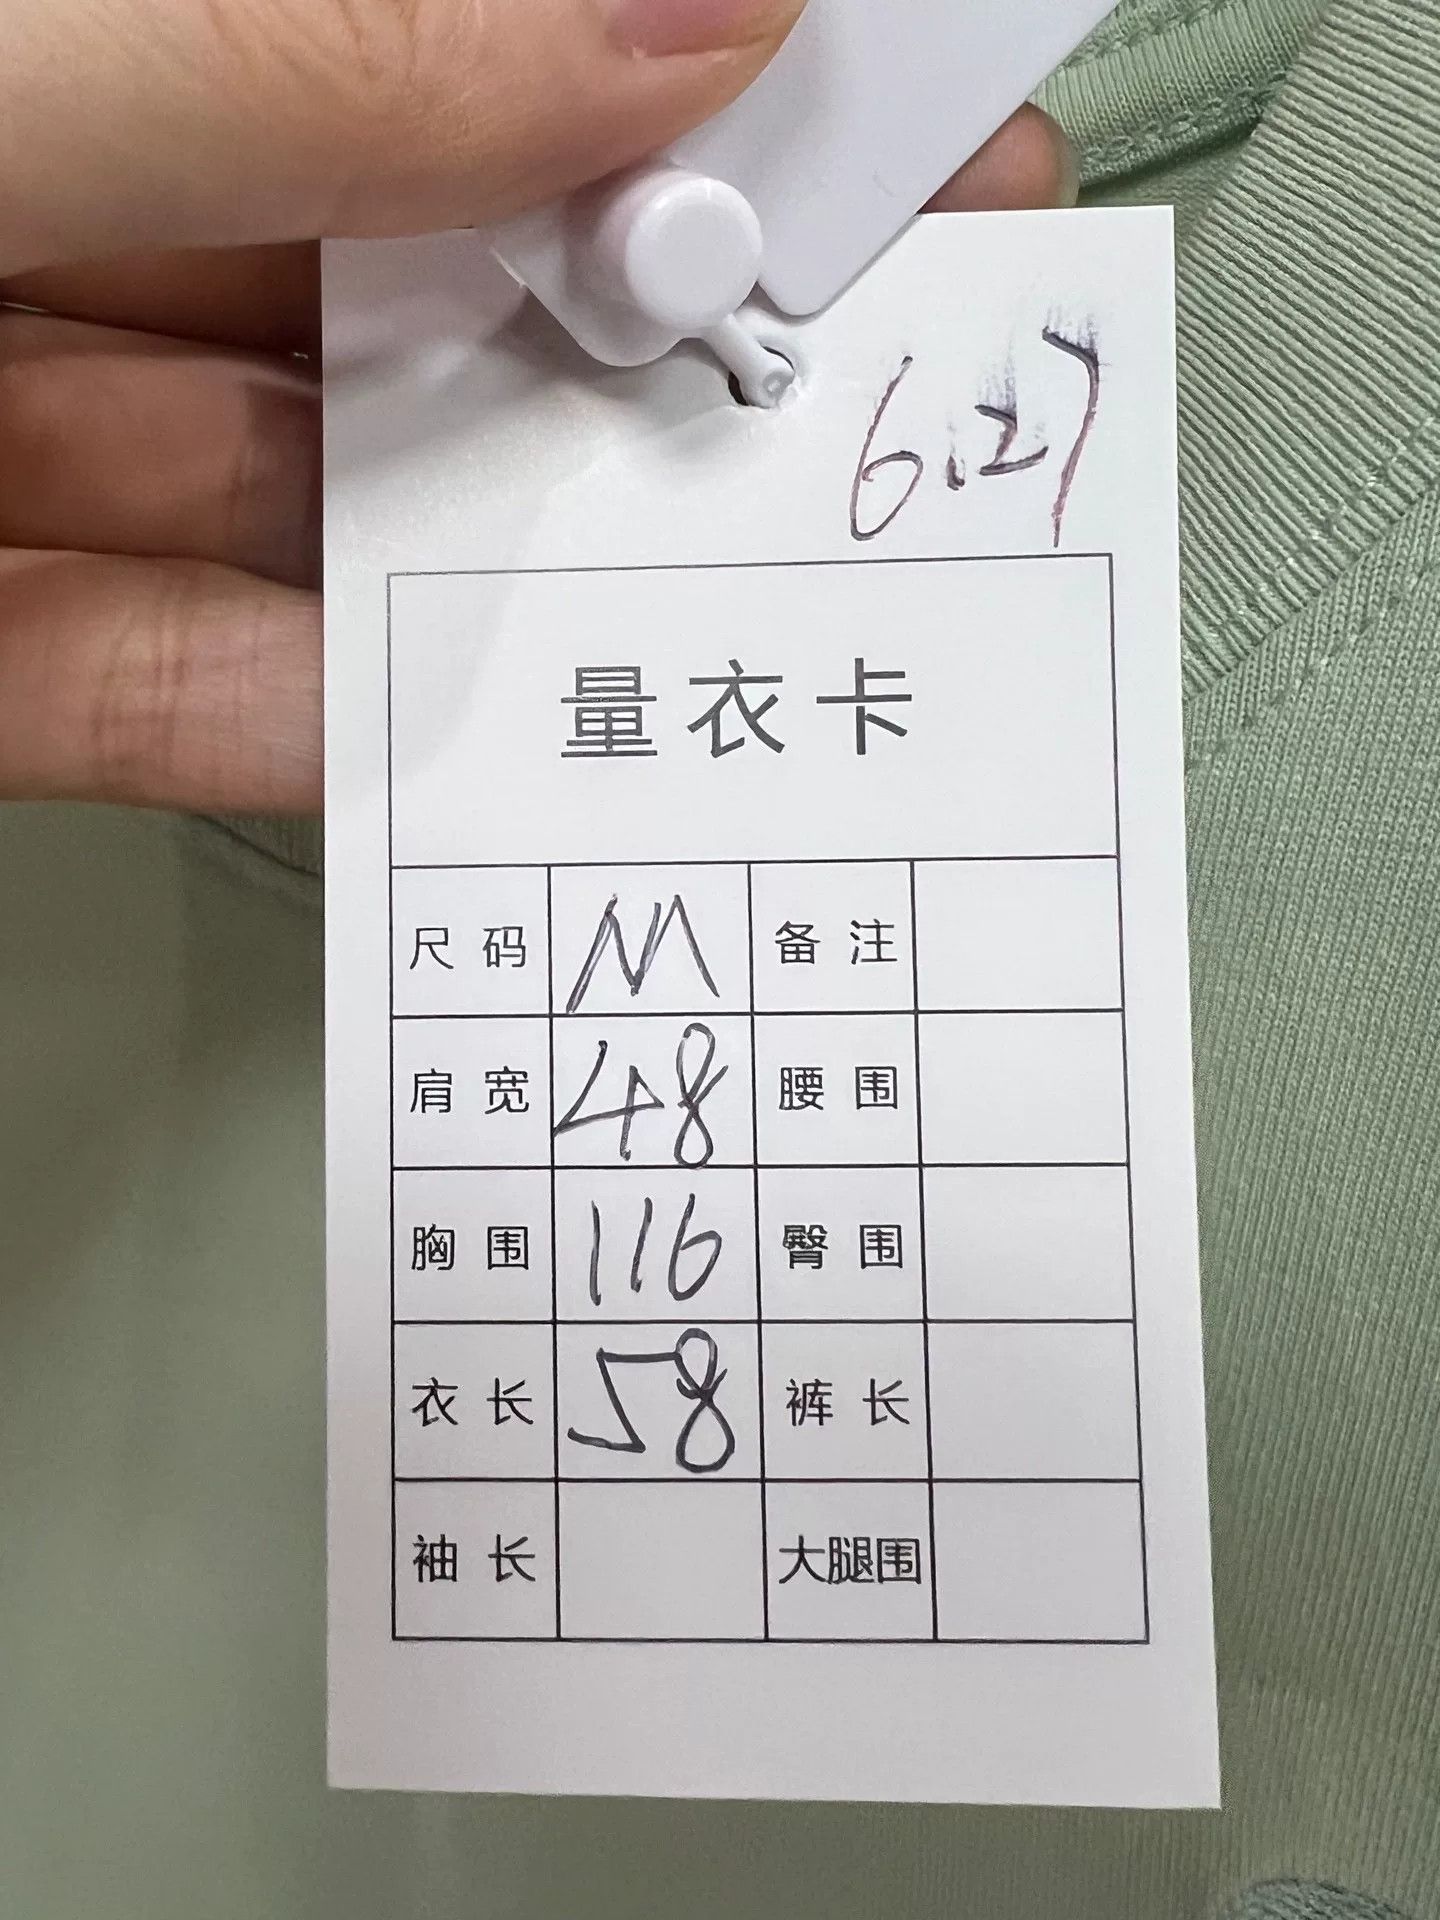 6.27
量衣卡
尺码 M 备注
肩宽 48 腰围
胸围 116 臀围
衣长 58 裤长
袖长 大腿围